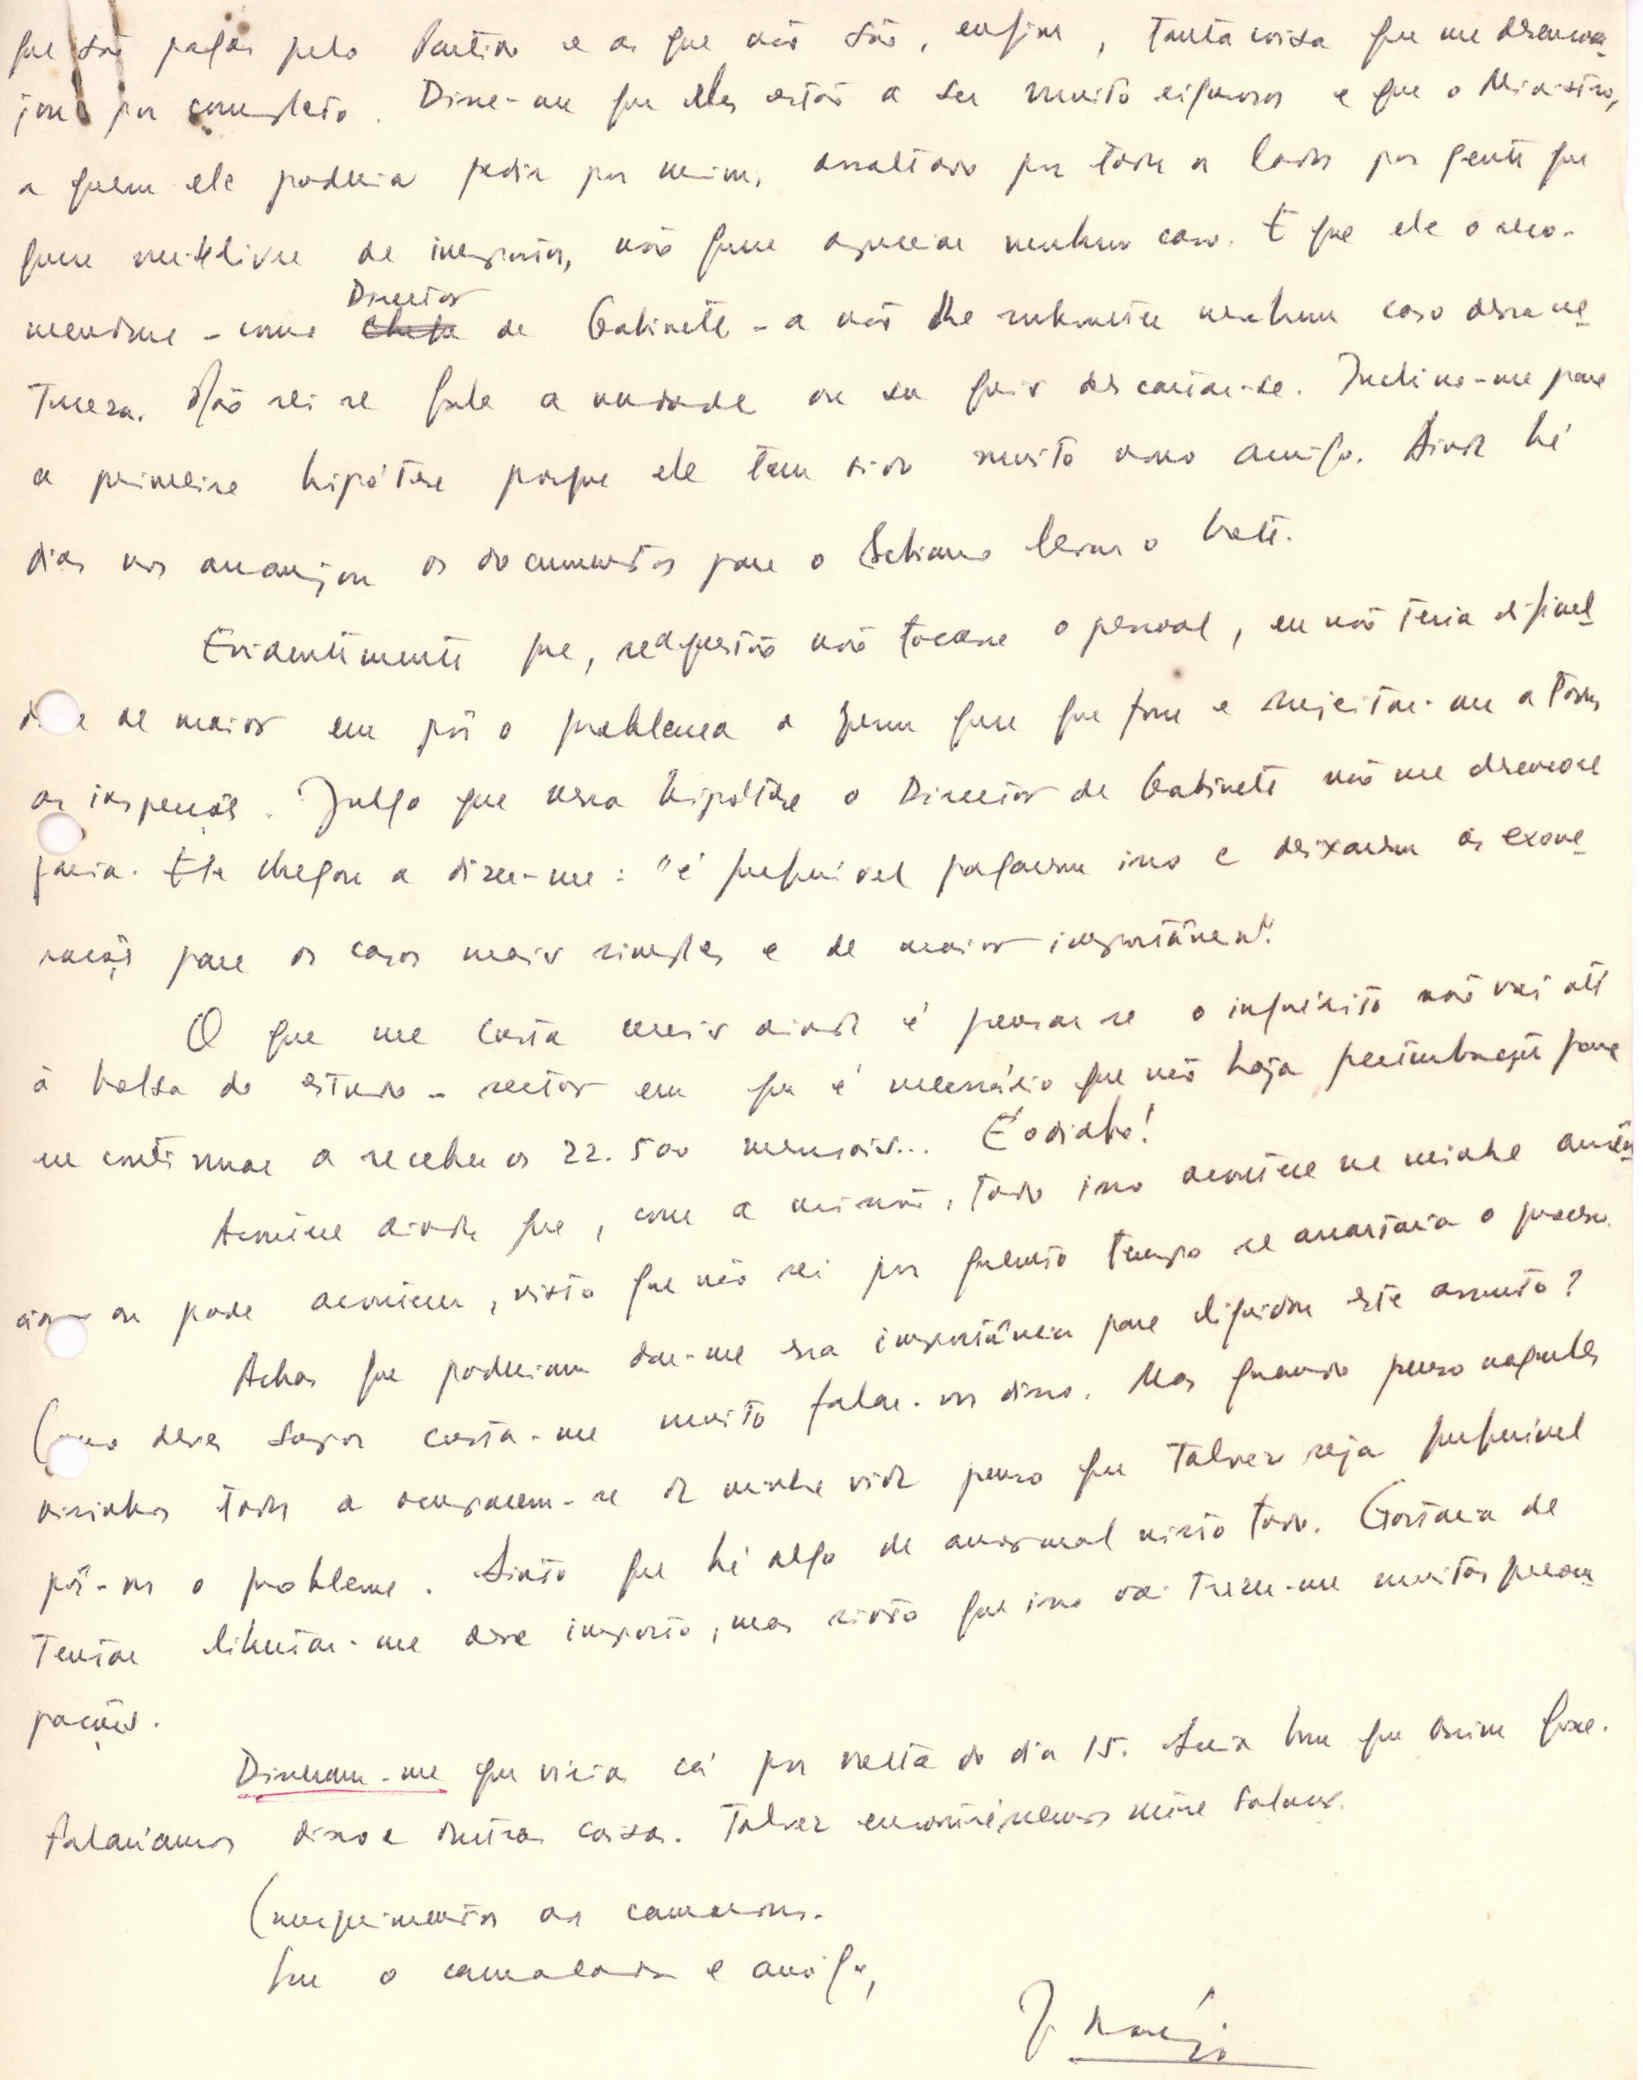 que são pagos pelo Partido e os que não são, enfim, tanta coisa que me desenco-
jou por completo. Disse-me que eles estão a ser muito rigorosos e que o Ministro,
a quem ele poderia pedir por mim, assaltado por todos os lados por gente que
quer ver-se livre de impostos, não quer apreciar nenhum caso. E que ele o reco-
mendou - como Director de Gabinete - a não lhe submeter nenhum caso dessa na-
tureza. Não sei se fala a verdade ou se quis descartar-se. Inclino-me para
a primeira hipótese porque ele tem sido muito nosso amigo. Ainda há
dias nos arranjou os documentos para o levar o
Evidentemente que, se a questão não tocasse o pessoal, eu não teria dificul-
dade de maior em pôr o problema a quem quer que fosse e sujeitar-me a todas
as inspecções. Julgo que nessa hipótese o Director de Gabinete não me desenco-
jaria. Ele chegou a dizer-me: "é preferível pagarem isso e deixarem as exone-
rações para os casos mais simples e de maior importância".
O que me custa mais ainda é pensar se o inquérito não vai até
à bolsa de estudo - sector em que é necessário que não haja perturbações para
se continuar a receber os 22.500 mensais... É o diabo!
Acontece ainda que, com a missão, tudo isso acontece na minha ausên-
cia ou pode acontecer, visto que não sei por quanto tempo se arrastaria o processo.
Achas que poderiam dar-me essa importância para liquidar este assunto?
Como deves supor custa-me muito falar-vos disso. Mas quando penso naqueles
vizinhos todos a ocuparem-se da minha vida penso que talvez seja preferível
pôr-vos o problema. Sinto que há algo de anormal nisto tudo. Gostaria de
tentar libertar-me desse imposto, mas sinto que isso vai trazer-me muitas preocu-
pações.
Disseram-me que virias cá por volta do dia 15. Seria bom que assim fosse.
Falaríamos disso e doutras coisas. Talvez encontrássemos
Cumprimentos aos camaradas.
Seu o camarada e amigo,